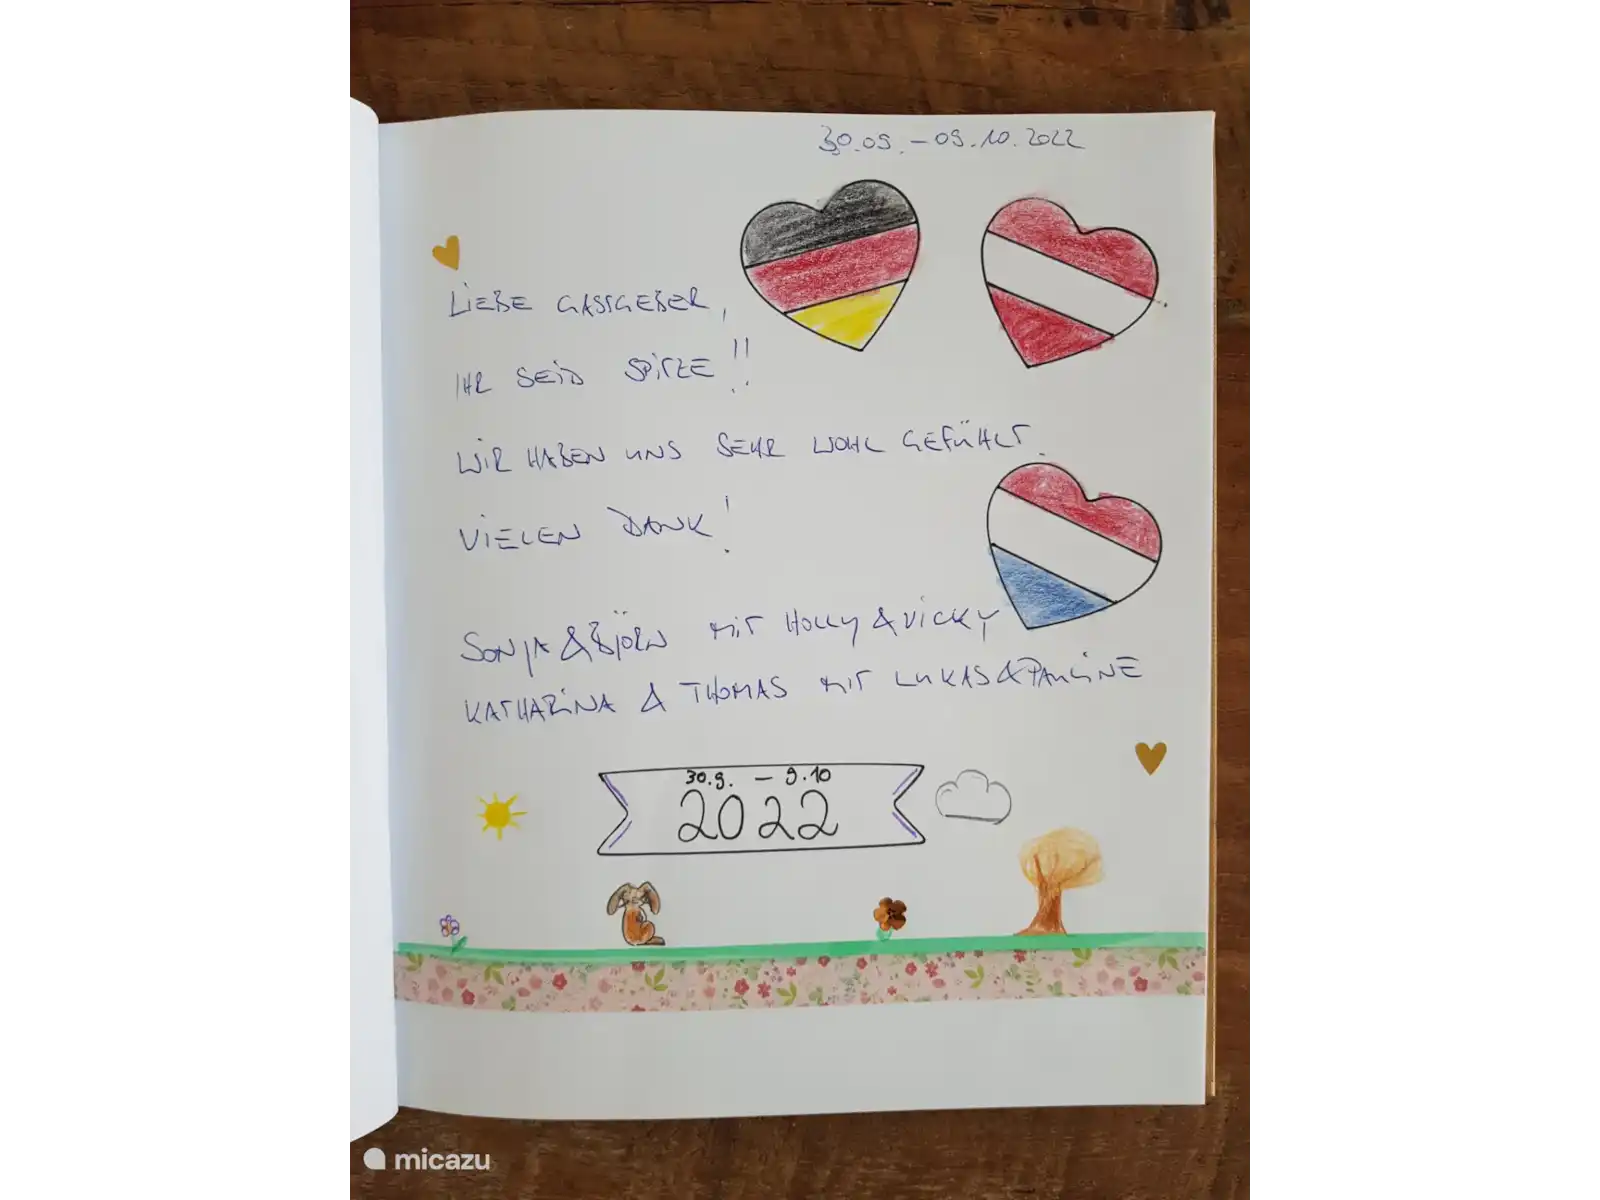 30.09. – 09.10.2022
LIEBE GASTGEBER,
IHR SEID SPITZE!!
WIR HABEN UNS SEHR WOHL GEFÜHLT.
VIELEN DANK!
SONJA & BJÖRN MIT HOLLY & VICKY
KATHARINA & THOMAS MIT LUKAS & PAULINE
30.9. – 9.10
2022
micazu